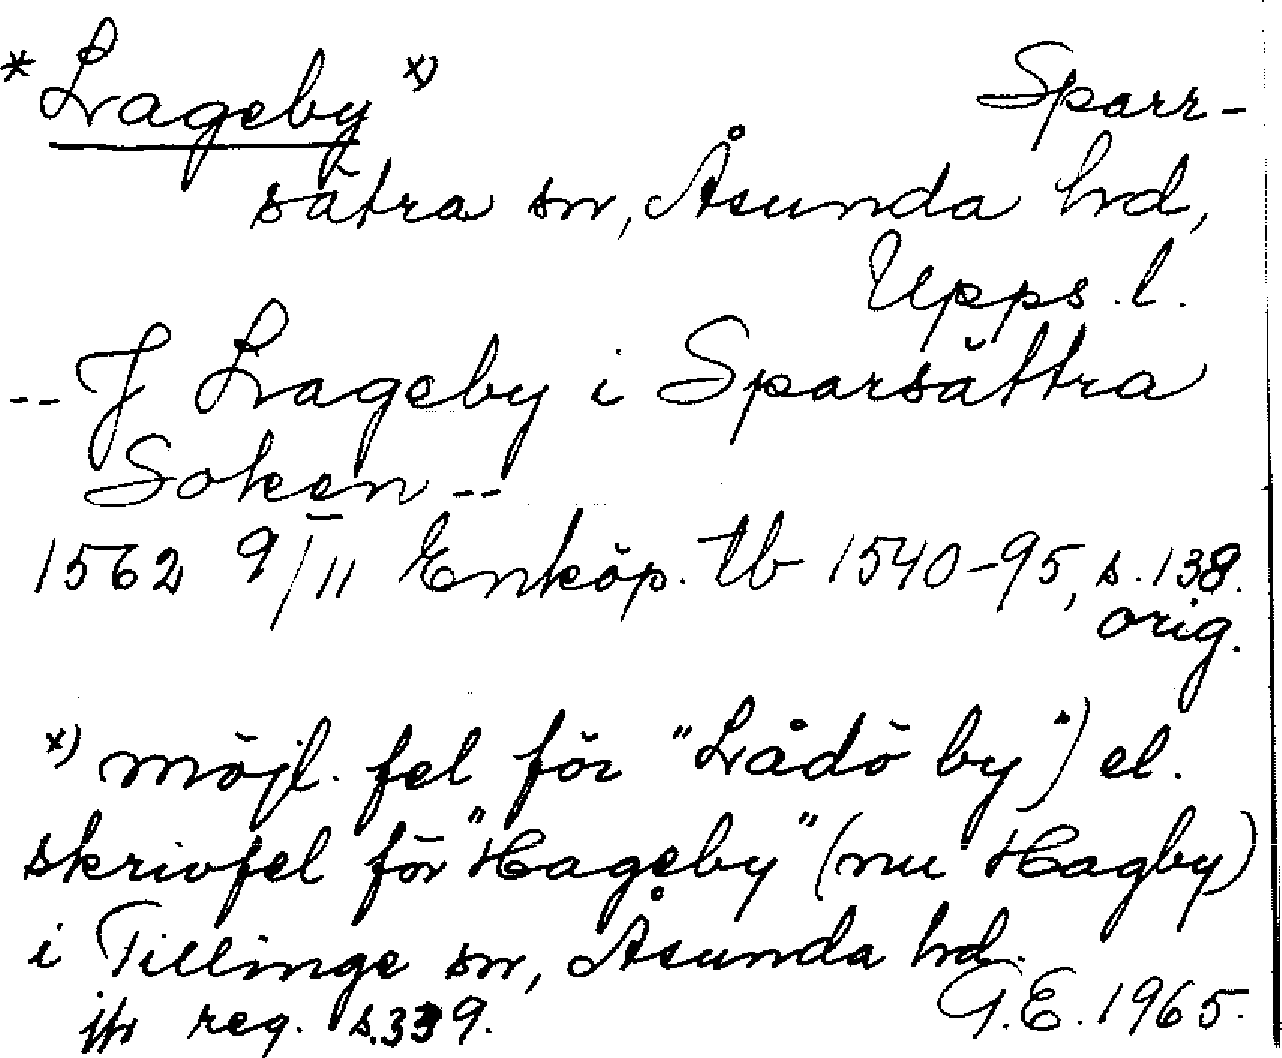 *Lageby x) Sparr-
sätra sn, Åsunda hd,
Upps. l.
-- J Lageby i Sparsättra
Soken --
1562 9/11 Enköp. tb 1540-95, s. 138.
orig.
x) möjl. fel för "Lådö by") el.
skrivfel för "Hageby" (nu Hagby)
i Tillinge sn, Åsunda hd.
jfr reg. s. 339. G.E. 1965.